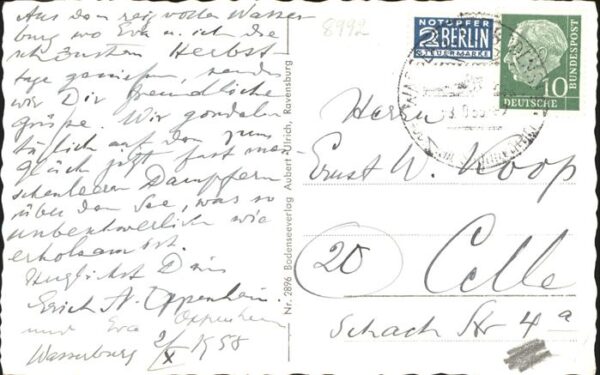 Aus dem reizvollen Wasser
burg wo Eva u. ich die
schönsten Herbst
tage geniessen, senden
wir Dir freundliche
Grüsse. Wir gondeln
täglich auf den zum
Glück jetzt fast men-
schenleeren Dampfern
über den See, was so
unbeschwerlich wie
erholsam ist.
Herzlichst Dein
Erich A. Oppenheim.
und Eva Oppenheim
Wasserburg 2/X 1958
8992
Nr. 2896 Bodenseeverlag Aubert Ulrich, Ravensburg
NOTOPFER
2 BERLIN
STEUERMARKE
DEUTSCHE
BUNDESPOST
10
Herrn
Ernst W. Koop
20 Celle
Schach Str 4a